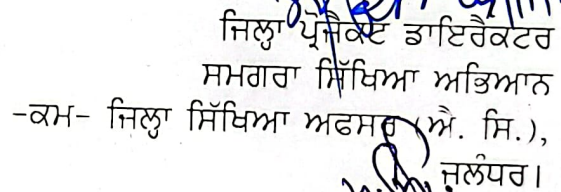 ਜਿਲ੍ਹਾ ਪ੍ਰੋਜੈਕਟ ਡਾਇਰੈਕਟਰ
ਸਮਗਰਾ ਸਿੱਖਿਆ ਅਭਿਆਨ
-ਕਮ- ਜਿਲ੍ਹਾ ਸਿੱਖਿਆ ਅਫਸਰ (ਐ. ਸਿ.),
ਜਲੰਧਰ।